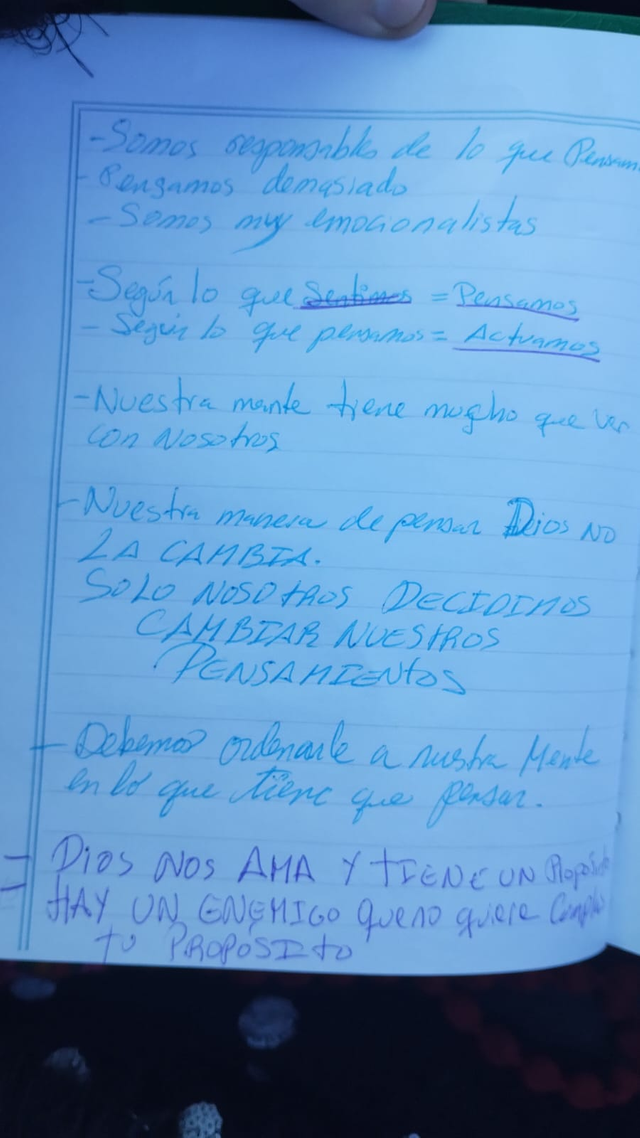 - Somos responsables de lo que Pensam
- Pensamos demasiado
- Somos muy emocionalistas
- Según lo que Sentimos = Pensamos
- Según lo que pensamos = Actuamos
- Nuestra mente tiene mucho que ver
con Nosotros
- Nuestra manera de pensar Dios NO
LA CAMBIA.
SOLO NOSOTROS DECIDIMOS
CAMBIAR NUESTROS
PENSAMIENTOS
- Debemos ordenarle a nuestra Mente
en lo que tiene que pensar.
- DIOS NOS AMA Y TIENE UN Proposito
- HAY UN ENEMIGO que no quiere
TU PROPOSITO